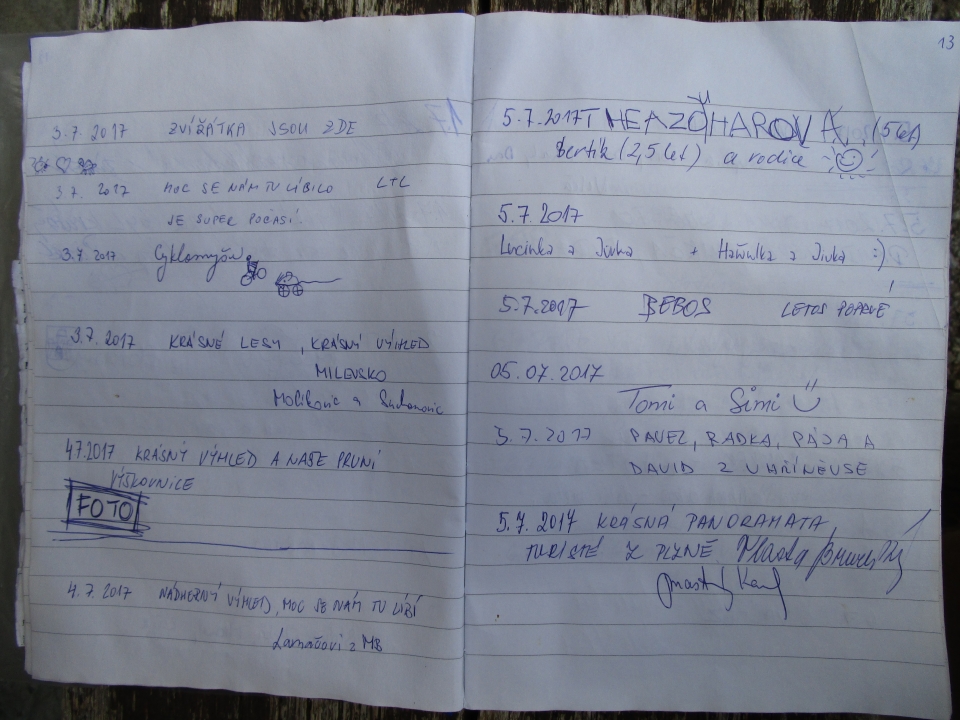 3.7. 2017 ZVÍŘÁTKA JSOU ZDE
3.7. 2017 MOC SE NÁM TU LÍBILO L+L
JE SUPER POČASÍ!
3.7. 2017 Cyklomyšu
3.7. 2017 KRÁSNÉ LESY, KRÁSNÝ VÝHLED
MILEVSKO
a
4.7.2017 KRÁSNÝ VÝHLED A NAŠE PRVNÍ
VÝŠKOVNICE
FOTO
4.7. 2017 NÁDHERNÝ VÝHLED, MOC SE NÁM TU LÍBÍ
z MB
13
5.7.2017 THEA (5 let)
bertík (2,5 let) a rodice
5.7.2017
Lucinka a Jirka + Haňulka a Jirka :)
5.7.2017 BEBOS LETOS POPRVÉ
05.07.2017
Tomi a Simi
5.7.2017 PAVEL, RADKA, PÁJA A
DAVID Z UHŘÍNĚVSE
5.7.2017 KRÁSNÁ PANORAMATA,
TURISTÉ Z PLZNĚ Vlasta